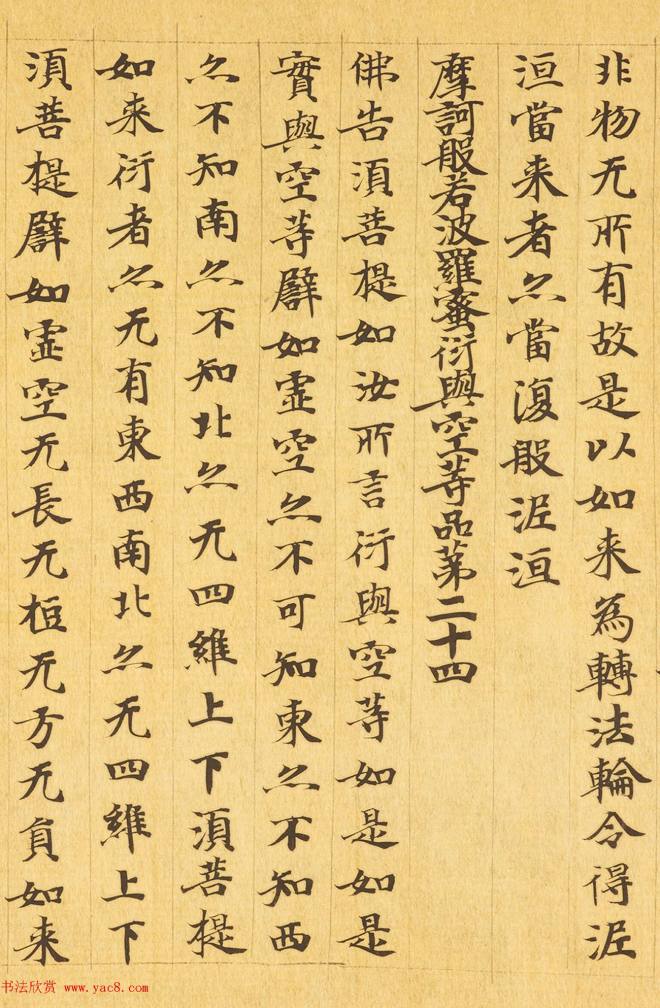 非物无所有故是以如来為轉法輪令得泥
洹當来者亦當復般泥洹
摩訶般若波羅蜜衍與空等品第二十四
佛告須菩提如汝所言衍與空等如是如是
實與空等譬如虛空亦不可知東亦不知西
亦不知南亦不知北亦无四維上下須菩提
如来衍者亦无有東西南北亦无四維上下
須菩提譬如虛空无長无短无方无負如来
书法欣赏 www.yac8.com